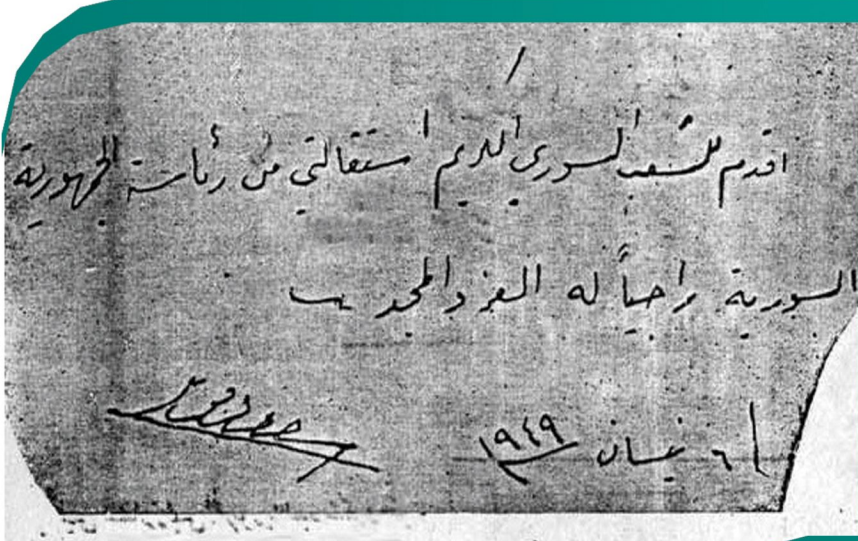 اقدم للشعب السوري الكريم استقالتي من رئاسة الجمهورية
السورية راجياً له العز والمجد
٦ نيسان ١٩٤٩